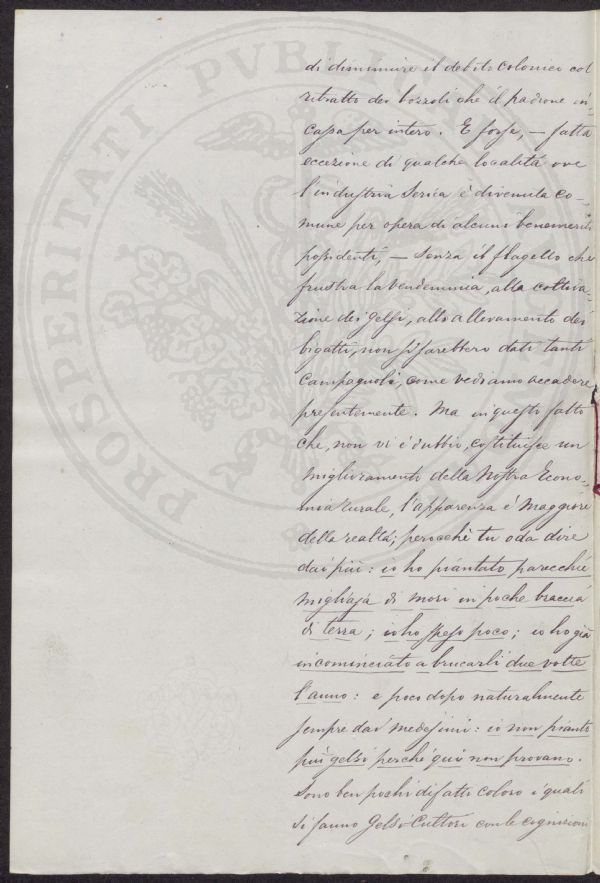 PROSPERITATI PVBLICAE
di diminuire il debito colonico col
ritratto dei bozzoli che il padrone in-
cassa per intero. E forse, — fatta
eccezione di qualche località ove
l'industria Serica è divenuta co-
mune per opera di alcuni benemeriti
possidenti, — senza il flagello che
frustra la vendemmia, alla coltiva-
zione dei gelsi, allo allevamento dei
bigatti, non si sarebbero dati tanti
Campagnoli, come vediamo accadere
presentemente. Ma in questo fatto
che, non vi è dubbio, costituisce un
miglioramento della nostra Econo-
mia rurale, l'apparenza è maggiore
della realtà; perocchè tu oda dire
dai più: io ho piantato parecchie
migliaja di mori in poche braccia
di terra; io ho speso poco; io ho già
incominciato a brucarli due volte
l'anno: e poco dopo naturalmente
sempre dai medesimi: io non pianto
più gelsi perchè qui non provano.
Sono ben pochi difatti coloro i quali
si fanno Gelsi Cultori con le cognizioni